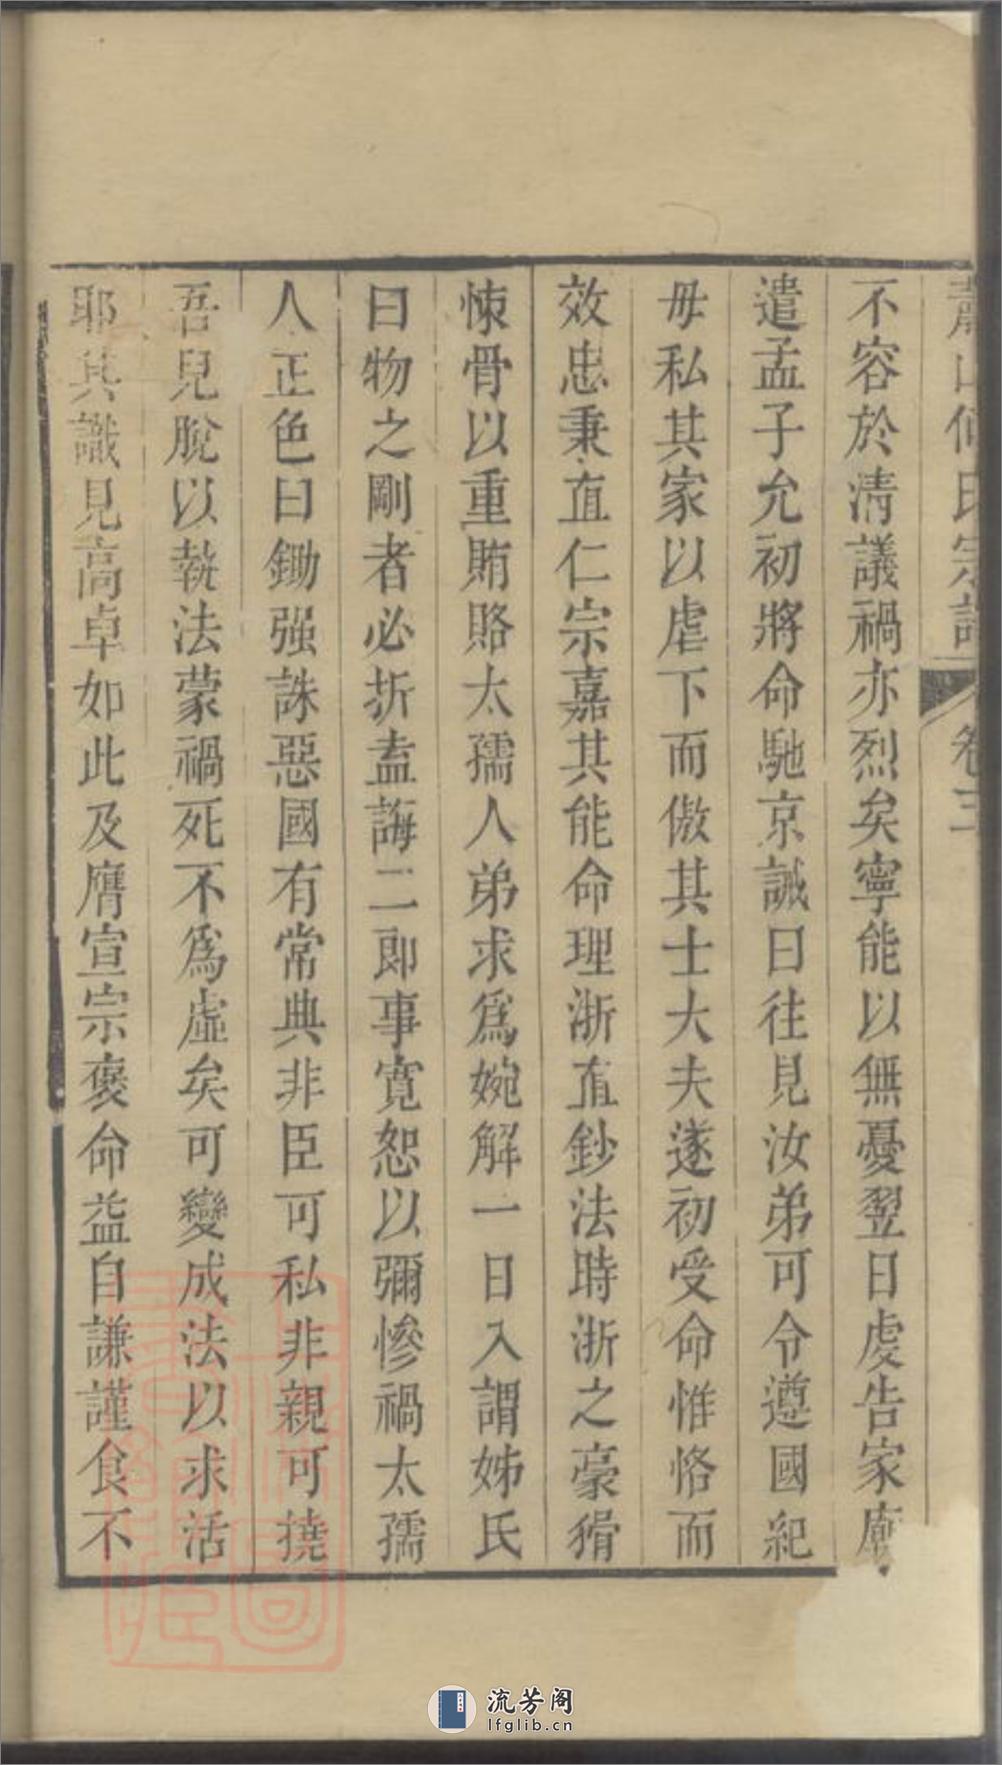 蕭山何氏宗譜 卷三
不容於清議禍亦烈矣寧能以無憂翌日虔告家廟
遣孟子允初將命馳京誡曰往見汝弟可令遵國紀
毋私其家以虐下而傲其士大夫遂初受命惟恪而
效忠秉直仁宗嘉其能命理浙直鈔法時浙之豪猾
悚骨以重賄賂太孺人弟求爲婉解一日入謂姊氏
曰物之剛者必折盍誨二郎事寬恕以彌慘禍太孺
人正色曰鋤强誅惡國有常典非臣可私非親可撓
吾兒脫以執法蒙禍死不爲虛矣可變成法以求活
耶其識見高卓如此及膺宣宗褒命益自謙謹食不
流芳阁
lfglib.cn